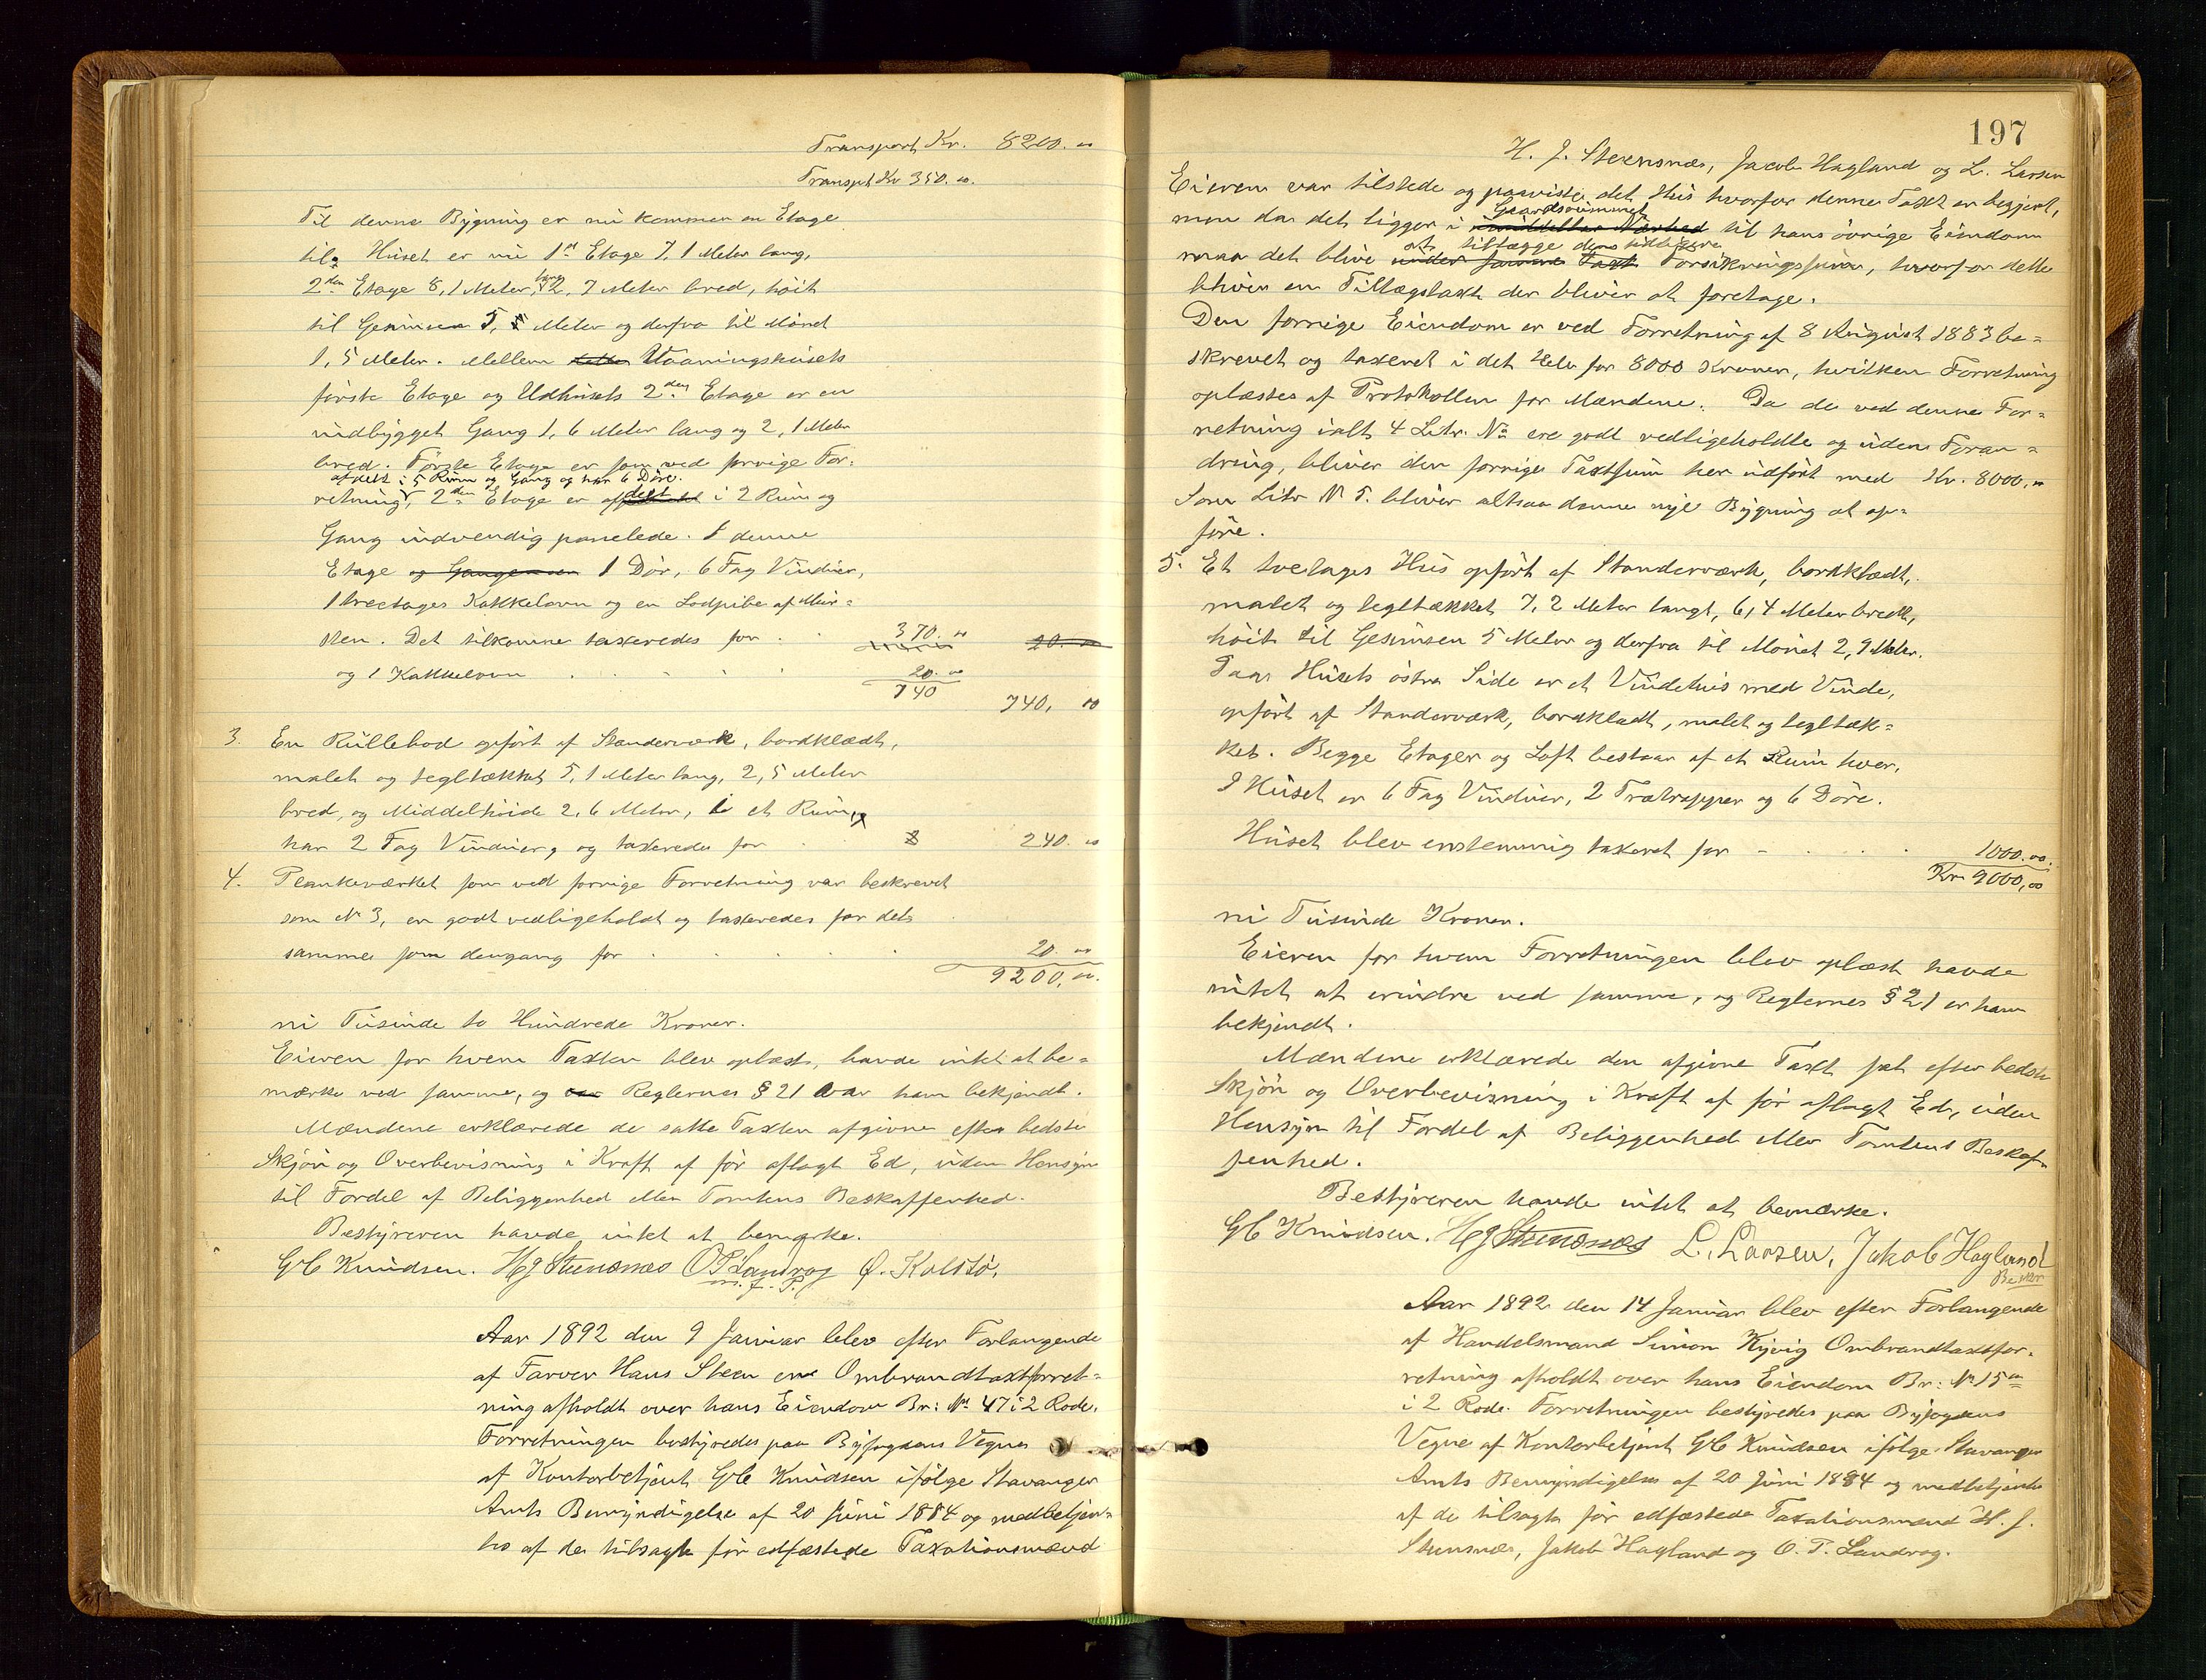 Transport Kr. 8200. 00
Transpt Kr 350. 00.
Til denne Bygning er nu kommen en Etage
til. Huset er nu 1ste Etage 7,1 Meter lang,
2den Etage 8,1 Meter lang, 2,7 Meter bred, høit
til Gesimsen 5, Meter og derfra til Mønet
1,5 Meter. Mellem Vaaningshusets
første Etage og Udhusets 2den Etage er en
indbygget Gang 1,6 Meter lang og 2,1 Meter
bred. Første Etage er som ved forrige For=
afdelt i 5 Rum og Gang og har 6 Døre.
retning, 2den Etage er afdelt i 2 Rum og
Gang indvendig panelede. I denne
Etage og Gangen 1 Dør, 6 Fag Vinduer,
1 treetages Kakkelovn og en Lodpibe af Mur=
sten. Det tilkomne taxeredes for . . 370. 00 20. 00
og 1 Kakkelovn . . . . 20. 00
740 740, 00
3. En Rullebod opført af Standerværk, bordklædt,
malet og tegltækket 5,1 Meter lang, 2,5 Meter
bred, og Middelhøide 2,6 Meter, i et Rum,
har 2 Fag Vinduer, og taxeredes for . . 240. 00
4. Plankeværket som ved forrige Forretning var beskrevet
som No 3, er godt vedligeholdt og taxeredes for det
samme som dengang for . . . . . 20. 00
9200. 00.
ni Tusinde to Hundrede Kroner.
Eieren for hvem Taxten blev oplæst, havde intet at be=
mærke ved samme, og var Reglernes § 21 var ham bekjendt.
Mændene erklærede de satte Taxten afgivne efter bedste
Skjøn og Overbevisning i Kraft af før aflagt Ed, uden Hensyn
til Fordel af Beliggenhed eller Tomtens Beskaffenhed.
Bestyreren havde intet at bemærke.
GC Knudsen. HJ Steensnæs OP Landrog Ø. Kolstø.
m. f. P.
Aar 1892 den 9 Januar blev efter Forlangende
af Farver Hans Steen en Ombrandtaxtforret=
ning afholdt over hans Eiendom Br: No 47 i 2 Rode.
Forretningen bestyredes paa Byfogdens Vegne
af Kontorbetjent GC Knudsen ifølge Stavanger
Amts Bemyndigelse af 20 Juni 1884 og medbetjen=
tes af de tilsagte før edfæstede Taxationsmænd
197
H. J. Steensnæs, Jacob Hagland og L. Larsen
Eieren var tilstede og paaviste det Hus hvorfor denne Taxt er begjert,
Gaardsrummet
men da det ligger i umiddelbar Nærhed til hans øvrige Eiendom
at tillægge dens tidligere
maa det blive under samme Taxt Forsikringssum, hvorfor dette
bliver en Tillægstaxt der bliver at foretage.
Den forrige Eiendom er ved Forretning af 8 August 1883 be=
skrevet og taxeret i det Hele for 8000 Kroner, hvilken Forretning
oplæstes af Protokollen for Mændene. Da de ved denne For=
retning ialt 4 Litr. No ere godt vedligeholdte og uden Foran=
dring, bliver den forrige Taxtsum her udført med Kr. 8000,00
Som Litr No 5. bliver altsaa denne nye Bygning at op=
føre.
5. Et toetages Hus opført af Standerværk, bordklædt,
malet og tegltækket 7,2 Meter langt, 6,4 Meter bredt,
høit til Gesimsen 5 Meter og derfra til Mønet 2,9 Meter.
Paa Husets østre Side er et Vindehus med Vinde,
opført af Standerværk, bordklædt, malet og tegltæk=
ket. Begge Etager og Loft bestaar af et Rum hver,
I Huset er 6 Fag Vinduer, 2 Trætrapper og 6 Døre.
Huset blev enstemmig taxeret for . . . . 1000.00.
Kr. 9000,00
ni Tusinde Kroner.
Eieren for hvem Forretningen blev oplæst havde
intet at erindre ved samme, og Reglernes § 21 er ham
bekjendt.
Mændene erklærede den afgivne Taxt sat efter bedste
Skjøn og Overbevisning i Kraft af før aflagt Ed, uden
Hensyn til Fordel af Beliggenhed eller Tomtens Beskaf=
fenhed.
Bestyreren havde intet at bemærke.
GC Knudsen. HJ Steensnæs L. Larsen, Jakob Hagland
Aar 1892 den 14 Januar blev efter Forlangende
af Handelsmand Simon Kyvig Ombrandtaxtfor=
retning afholdt over hans Eiendom Br: No 15a
i 2 Rode. Forretningen bestyredes paa Byfogdens
Vegne af Kontorbetjent GC Knudsen ifølge Stavanger
Amts Bemyndigelse af 20 Juni 1884 og medbetjentes
af de tilsagte før edfæstede Taxationsmænd H. J.
Steensnæs, Jakob Hagland og O. P. Landrog.